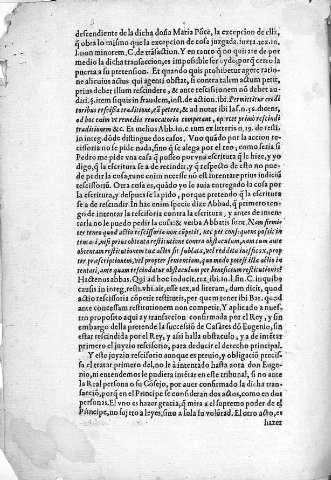 descendiente de la dicha doña Maria Põce, la excepcion de ella,
q̃ obra lo mismo que la excepcion de cosa juzgada. iuxta. tex. in
l. non minorem, C. de trãsaction. Y en tanto q̃ no quitare de por
medio la dicha transaccion, es impossible ser oydo, porq̃ cerro la
puerta a su pretension. Et quando quis prohibetur agere ratione
alicuius actus, qui agenti obstat, si contra talem actum petit,
prius debet illum rescindere, & ante rescissionem nõ debet audiri.
§. item si quis in fraudem, inst. de action. ibi. Permittitur creditoribus
rescissa traditione, eã petere, & ad hoc
ad hoc enim vt remedio reuocatorio comperant, oportet prius rescindi
traditionem &c. Et melius Abb. in c. cum ex litteris n. 19. de restit.
in integ. dõde distingue dos casos. Vno quãdo por la accion rescissoria
no se pide nada, sino q̃ se alega por el reo, como seria si
Pedro me pide vna casa q̃ posseo por vna escritura q̃ le hize, y yo
digo, q̃ la escritura se a de rescindir, y q̃ respecto de esto no puede
pedir la cosa, tunc enim necesse nõ est intentare prius iudiciũ
rescissoriũ. Otra cosa es, quãdo yo le auia entregado la cosa por
la escritura, y despues se la pido, porque pretendo q̃ la escritura
se a de rescindir. In hac enim specie dize Abbad, q̃ primero tengo
de intentar la rescissoria contra la escritura, y antes de intentarla
no le puedo pedir la cosa: & verba Abbatis sunt. Nam firmiter
teneo quod actio rescissoria non cõpetit, nec per consequens possit intentari,
nisi prius obtenta restitutione contra obstaculum, nam tam ante
obtentam restitutionem tua actio est sublata, vel reddita inefficax, propter
præscriptionem, vel propter sententiam, quo modo potest illa actio intentari,
ante quam rescindatur obstaculum per beneficium restitutionis?
Hactenus abbas. Qui ad hoc inducit. tex. ibi. in l. fin. C. in quib9
causis in integ. restit. vbi ait, esse tex. ad literam, dum dicit, quod
actio rescissoria cõpetit restitutis, per quem tenet ibi Bar. quod
ante concessam restitutionem non competit. Y aplicado a nuestro
proposito aqui ay transaccion confirmada por el Rey, y sin
embargo della pretende la successiõ de Casares dõ Eugenio, sin
estar rescindida por el Rey, y assi halla obstaculo, y a de intentar
primero el juyzio rescissorio, para deducir el derecho principal.
Y este juyzio rescissorio aunque es preuio, y obligaciõ precissa
el tratar primero del, no le à intentado hasta aora don Eugenio,
ni entendemos le pudiera intétar en este tribunal, si no ante
la Real persona o su Cõsejo, por auer confirmado la dicha transacciõ,
porq̃ en el Principe se consideran dos actos, como en dos
personas. El vno es hazer gracia, q̃ mira a el supremo poder de el
Principe, no sujeto a leyes, sino a sola su volũtad. El otro acto, es
hazer